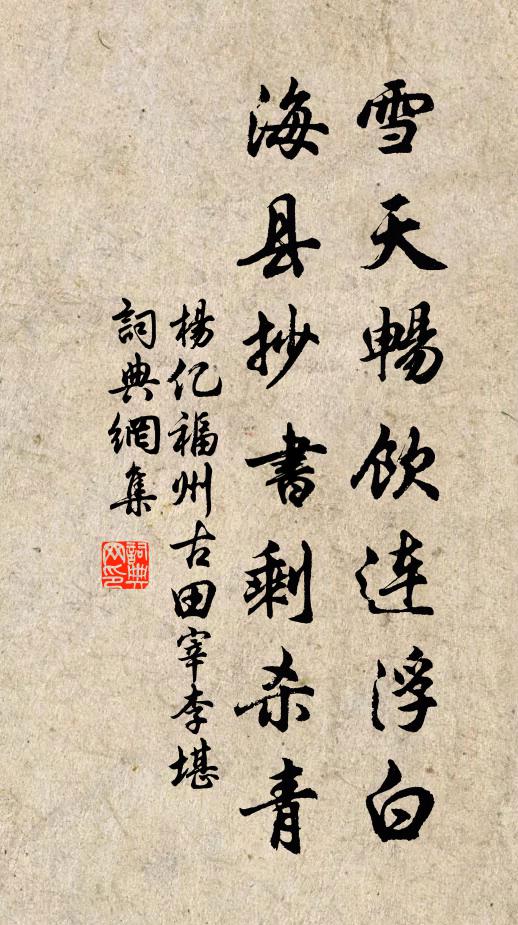 雪天暢飲连浮白
海县抄書剩杀青
楊亿福州古田宰李堪
詞典網集
詞典
网印